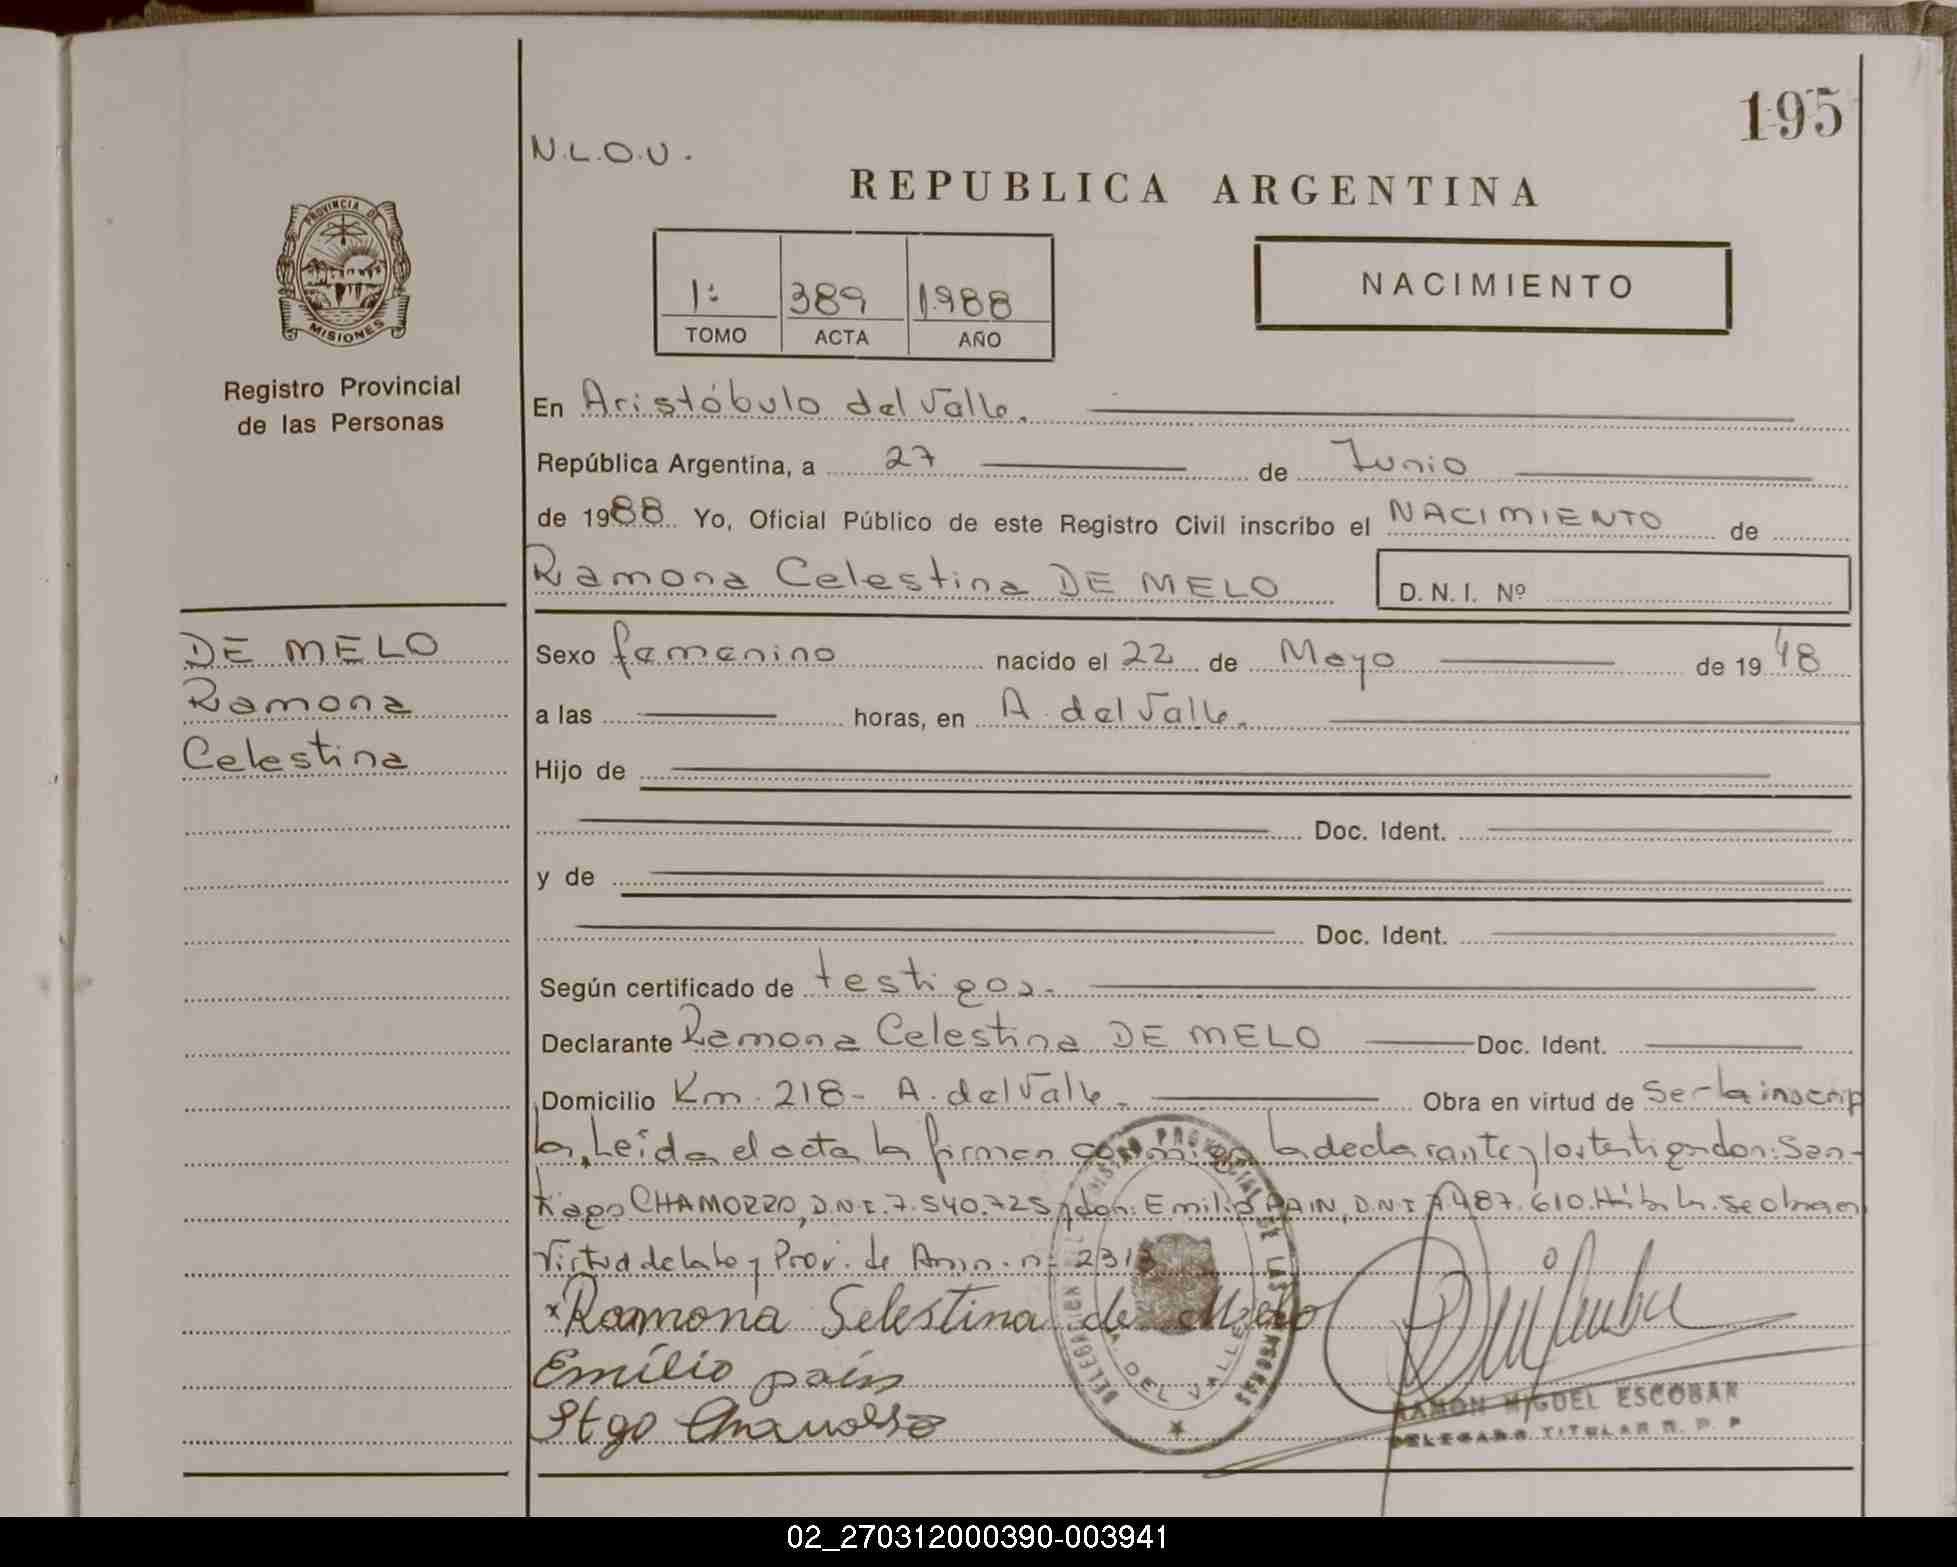 195
N.L.O.U.
REPUBLICA ARGENTINA
PROVINCIA DE
MISIONES
Registro Provincial
de las Personas
1º 389 1988
TOMO ACTA AÑO
NACIMIENTO
En Aristóbulo del Valle.
República Argentina, a 27 de Junio
de 1988. Yo, Oficial Público de este Registro Civil inscribo el NACIMIENTO de
Ramona Celestina DE MELO D.N.I. Nº
DE MELO
Ramona
Celestina
Sexo femenino nacido el 22 de Mayo de 1948
a las horas, en A. del Valle.
Hijo de
Doc. Ident.
y de
Doc. Ident.
Según certificado de testigos.
Declarante Ramona Celestina DE MELO Doc. Ident.
Domicilio Km. 218- A. del Valle. Obra en virtud de ser la inscrip
ta. Leída el acta la firman conmigo la declarante y los testigos don: San-
tiago CHAMORRO, D.N.I. 7.540.725 y don: Emilio PAIN, D.N.I. 7.487.610. se obra en
Virtud de la Ley Prov. de Amn. nº 2313
*Ramona Selestina de Melo
Emílio paín
Stgo Chamorro
DELEGACION REGISTRO PROVINCIAL DE LAS PERSONAS
A. DEL VALLE
RAMON MIGUEL ESCOBAR
DELEGADO TITULAR R. P. P
02_270312000390-003941